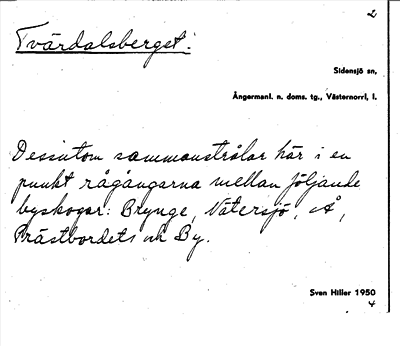 2
Tvärdalsberget.
Sidensjö sn,
Ångermanl. n. doms. tg., Västernorrl. l.
Dessutom sammanstrålar här i en
punkt rågångarna mellan följande
byskogar: Brynge, Nätersjö, Å,
Prästbordets och By.
Sven Hiller 1950
4